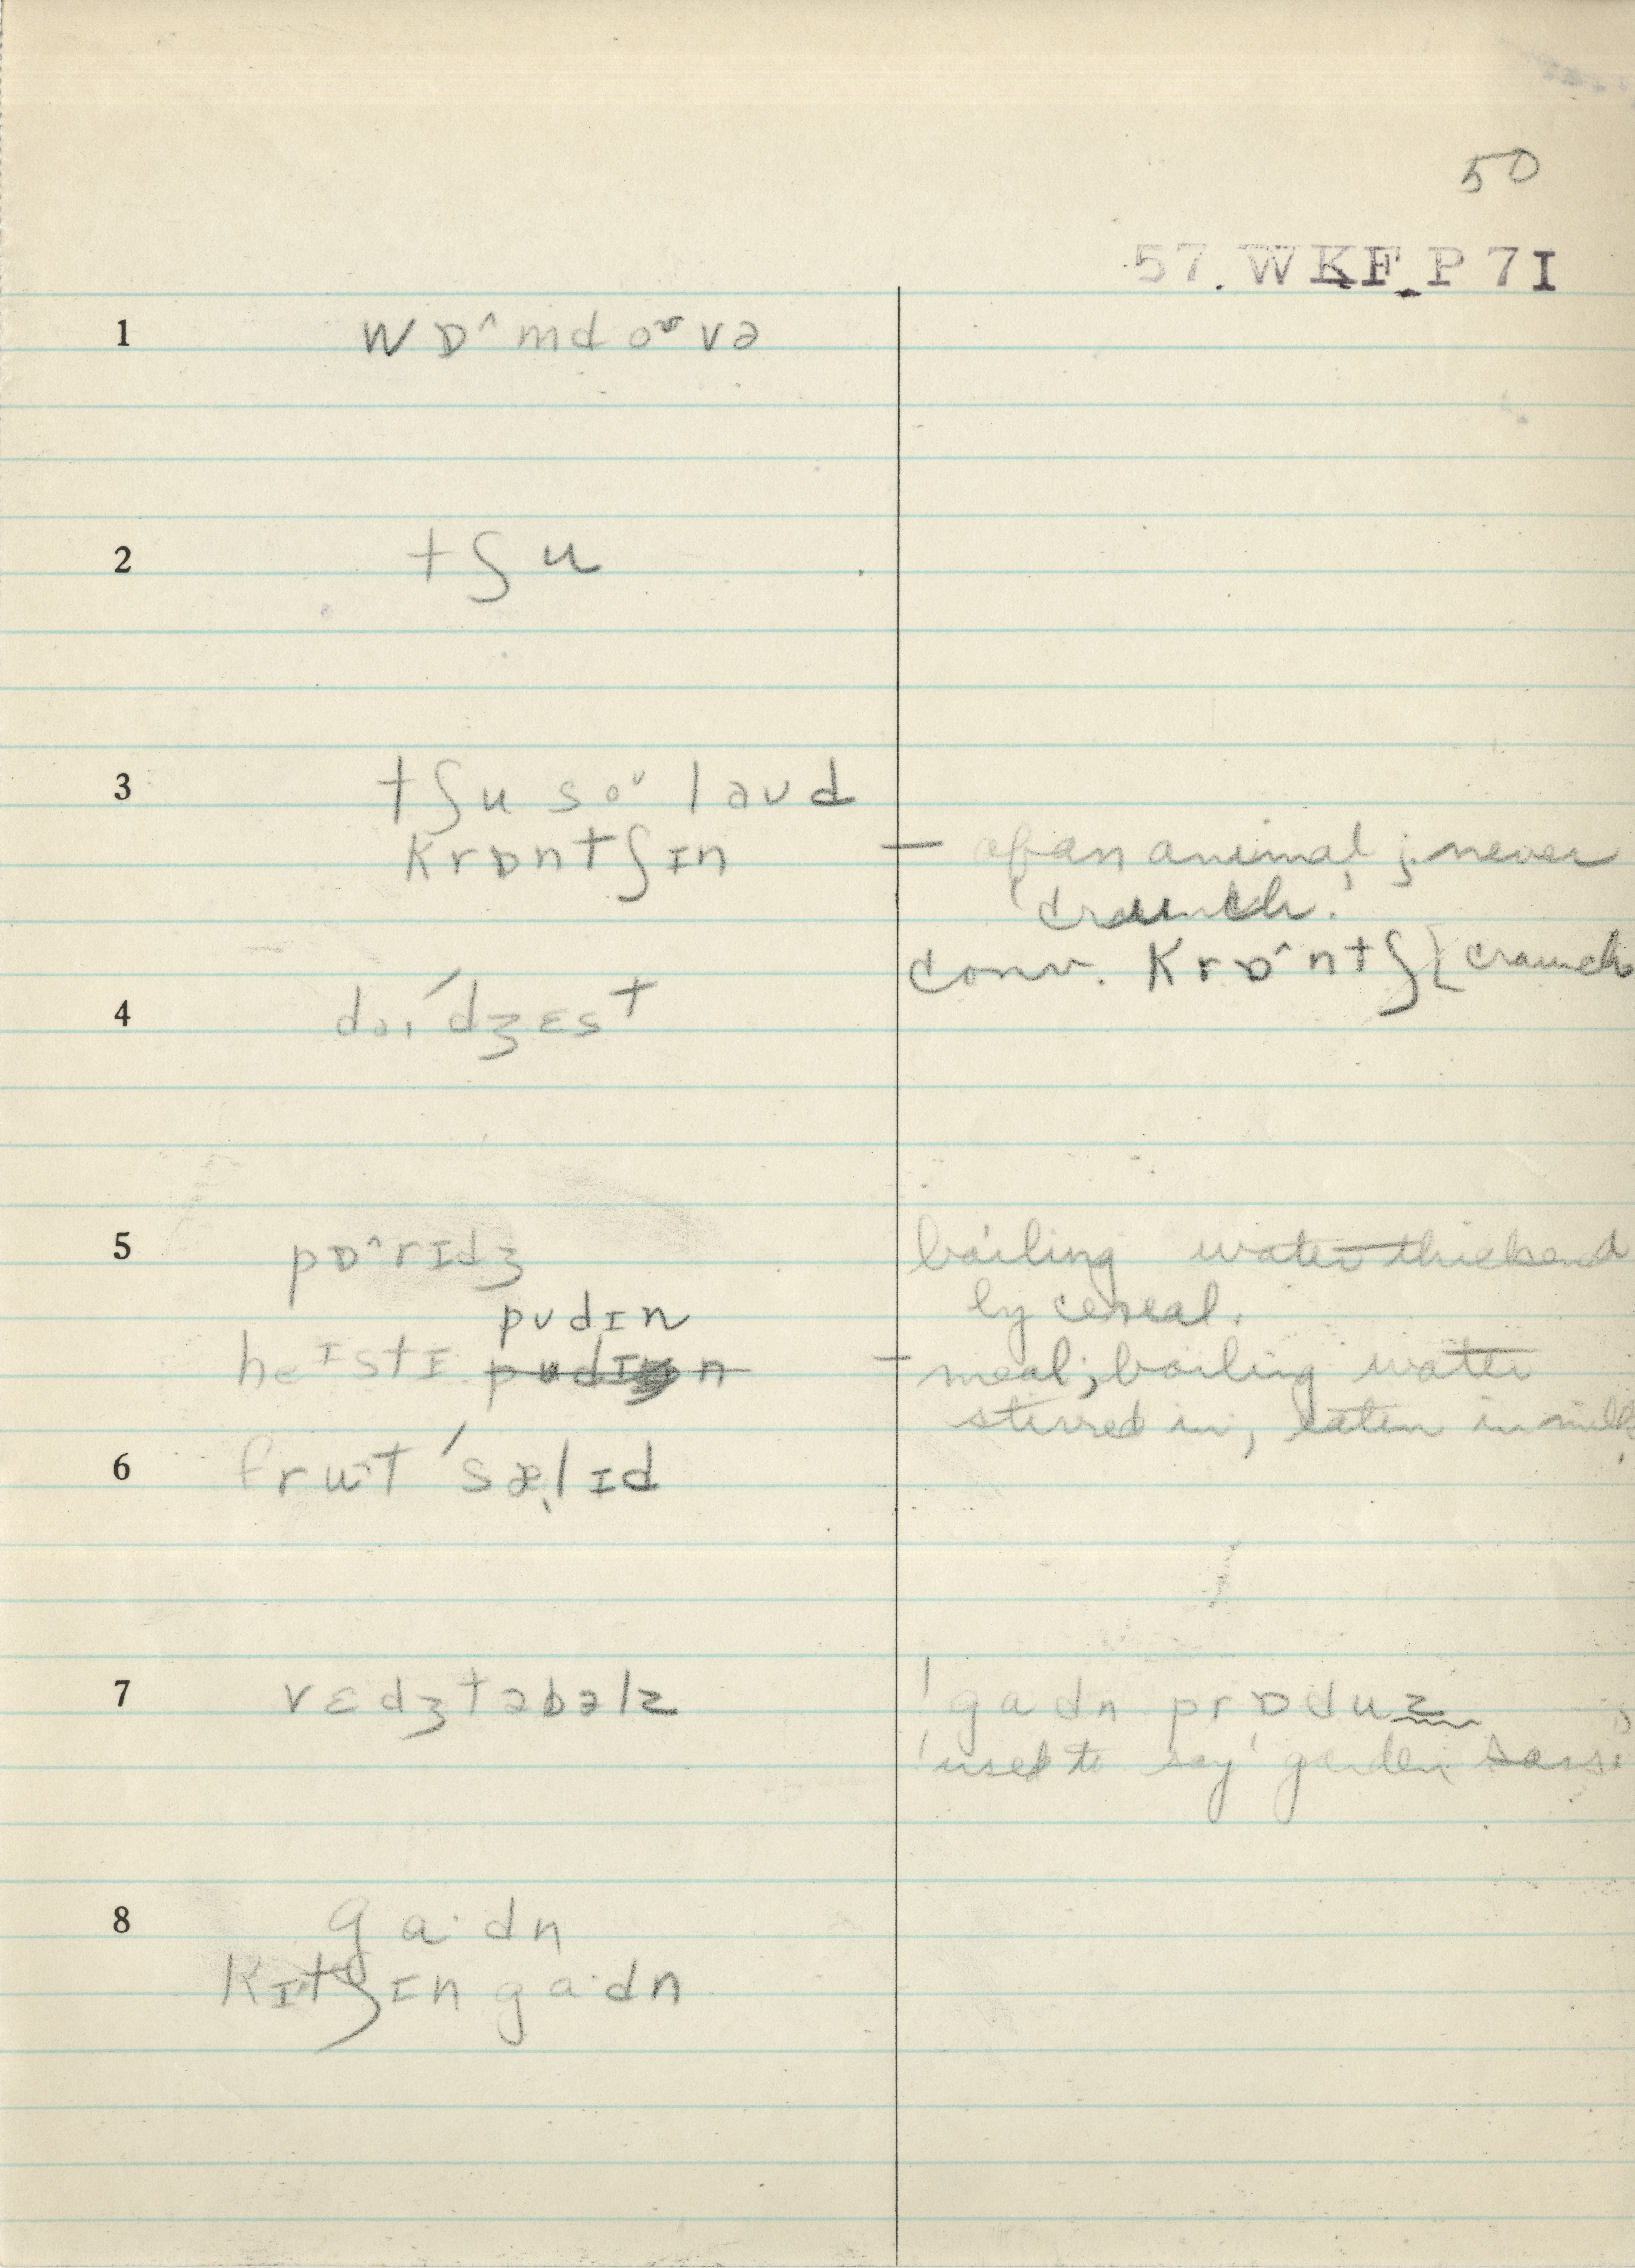 50
57. WKF P 7I
1 wɒ^mdoʊvə
2 tʃu
3 tʃu soᴗ laʊd
krɒntʃɪn — of an animal; never
'craunch.'
conv. krɒ^ntʃ [craunch
4 daɪ'dʒɛst
5 pɒ^rɪdʒ boiling water thickend
by cereal.
pʊdɪn
heɪstɪ — meal; boiling water
stirred in, eaten in milk.
6 frut 'sælɪd
7 vɛdʒtəbəlz 'gadn prɒduz
'used to say' garden sars:
8 ga·dn
kɪtʃɪn ga·dn